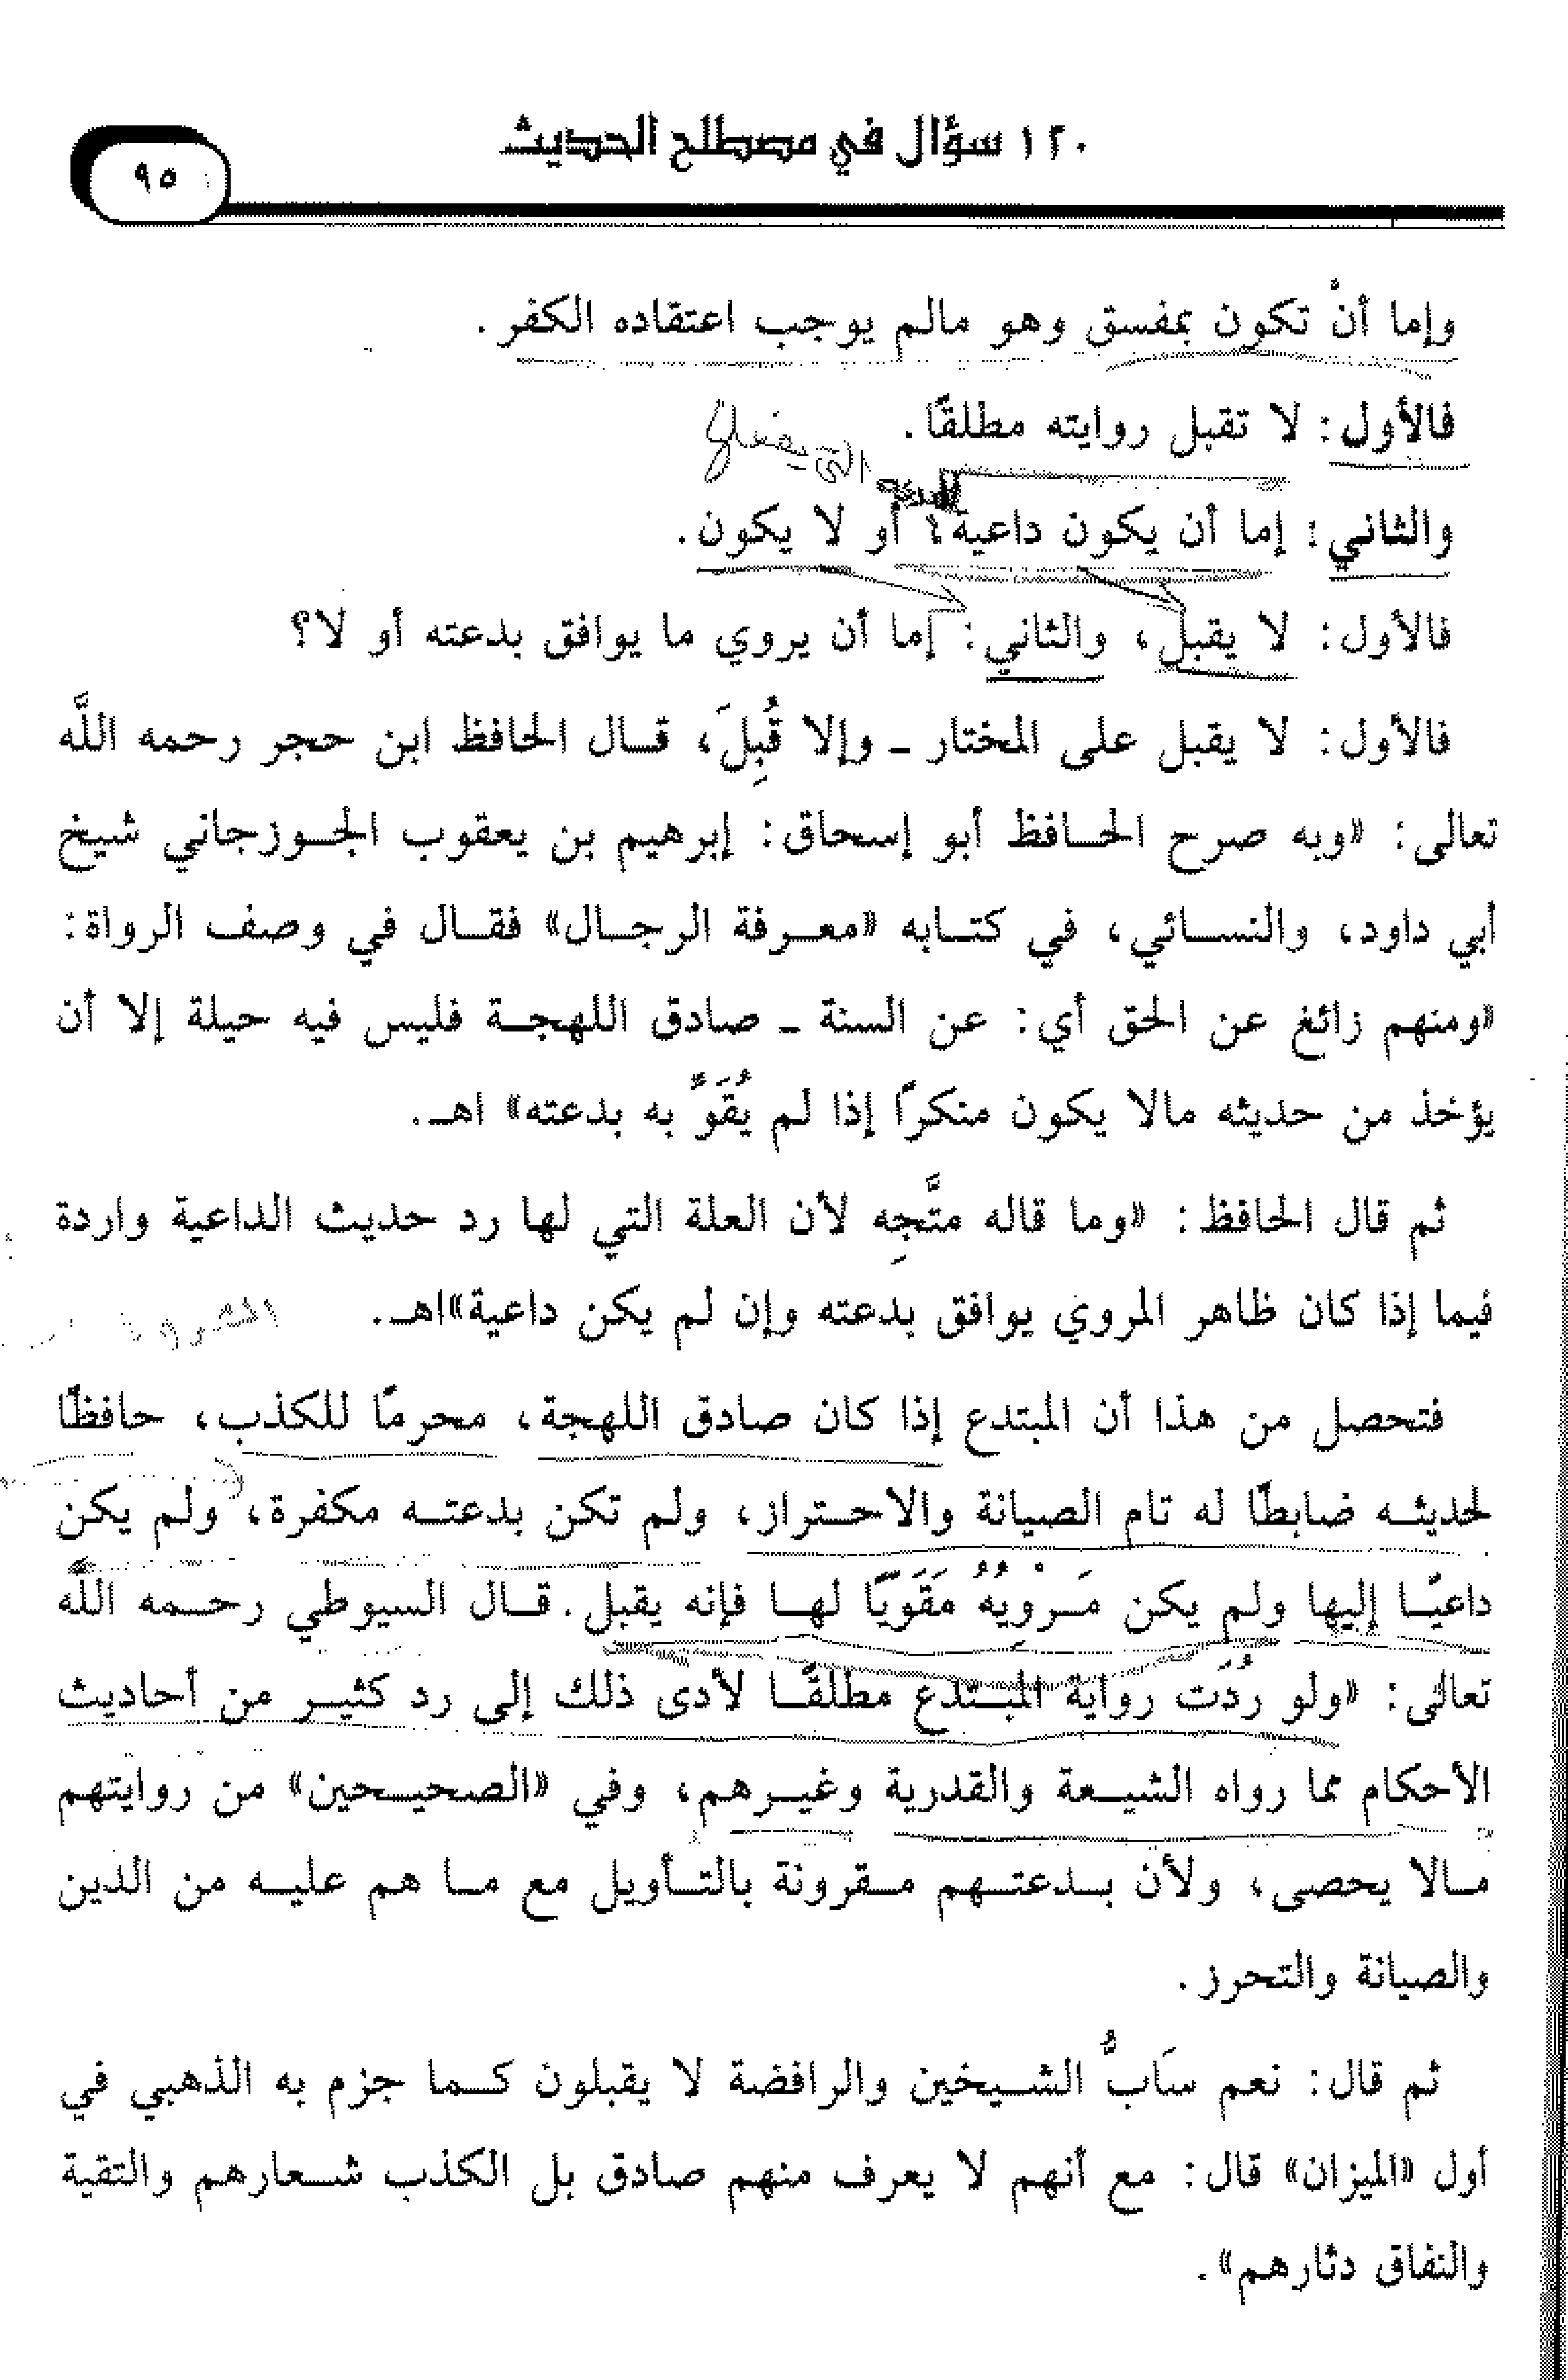 ١٢٠ سؤال في مصطلح الحديث
٩٥
وإما أنْ تكون بمفسق وهو مالم يوجب اعتقاده الكفر.
فالأول: لا تقبل روايته مطلقًا.
والثاني: إما أن يكون داعية؛ أو لا يكون.
فالأول: لا يقبل، والثاني: إما أن يروي ما يوافق بدعته أو لا؟
فالأول: لا يقبل على المختار ـ وإلا قُبِلَ، قـال الحافظ ابن حجر رحمه اللَّه
تعالى: «وبه صرح الحـافظ أبو إسحاق: إبرهيم بن يعقوب الجـوزجاني شيخ
أبي داود، والنسـائي، في كتـابه «معـرفة الرجـال» فقـال في وصف الرواة:
«ومنهم زائغ عن الحق أي: عن السنة ـ صادق اللهجـة فليس فيه حيلة إلا أن
يؤخذ من حديثه مالا يكون منكرًا إذا لم يُقَوَّ به بدعته» اهـ.
ثم قال الحافظ: «وما قاله متَّجِه لأن العلة التي لها رد حديث الداعية واردة
فيما إذا كان ظاهر المروي يوافق بدعته وإن لم يكن داعية»اهـ.
فتحصل من هذا أن المبتدع إذا كان صادق اللهجة، محرمًا للكذب، حافظًا
لحديثـه ضابطًا له تام الصيانة والاحـتراز، ولم تكن بدعتـه مكفرة، ولم يكن
داعيًـا إليها ولم يكن مَـرْوِيُهُ مَقَوّيًا لهـا فإنه يقبل. قـال السيوطي رحـمه اللَّه
تعالى: «ولو رُدَت رواية المبـتدع مطلقًـا لأدى ذلك إلى رد كثيـر من أحاديث
الأحكام مما رواه الشيـعة والقدرية وغيـرهم، وفي «الصحيـحين» من روايتهم
مـالا يحصى، ولأن بـدعتـهم مـقرونة بالتـأويل مع مـا هم عليـه من الدين
والصيانة والتحرز.
ثم قال: نعم سَابُّ الشـيخين والرافضة لا يقبلون كـما جزم به الذهبي في
أول «الميزان» قال: مع أنهم لا يعرف منهم صادق بل الكذب شـعارهم والتقية
والنفاق دثارهم».